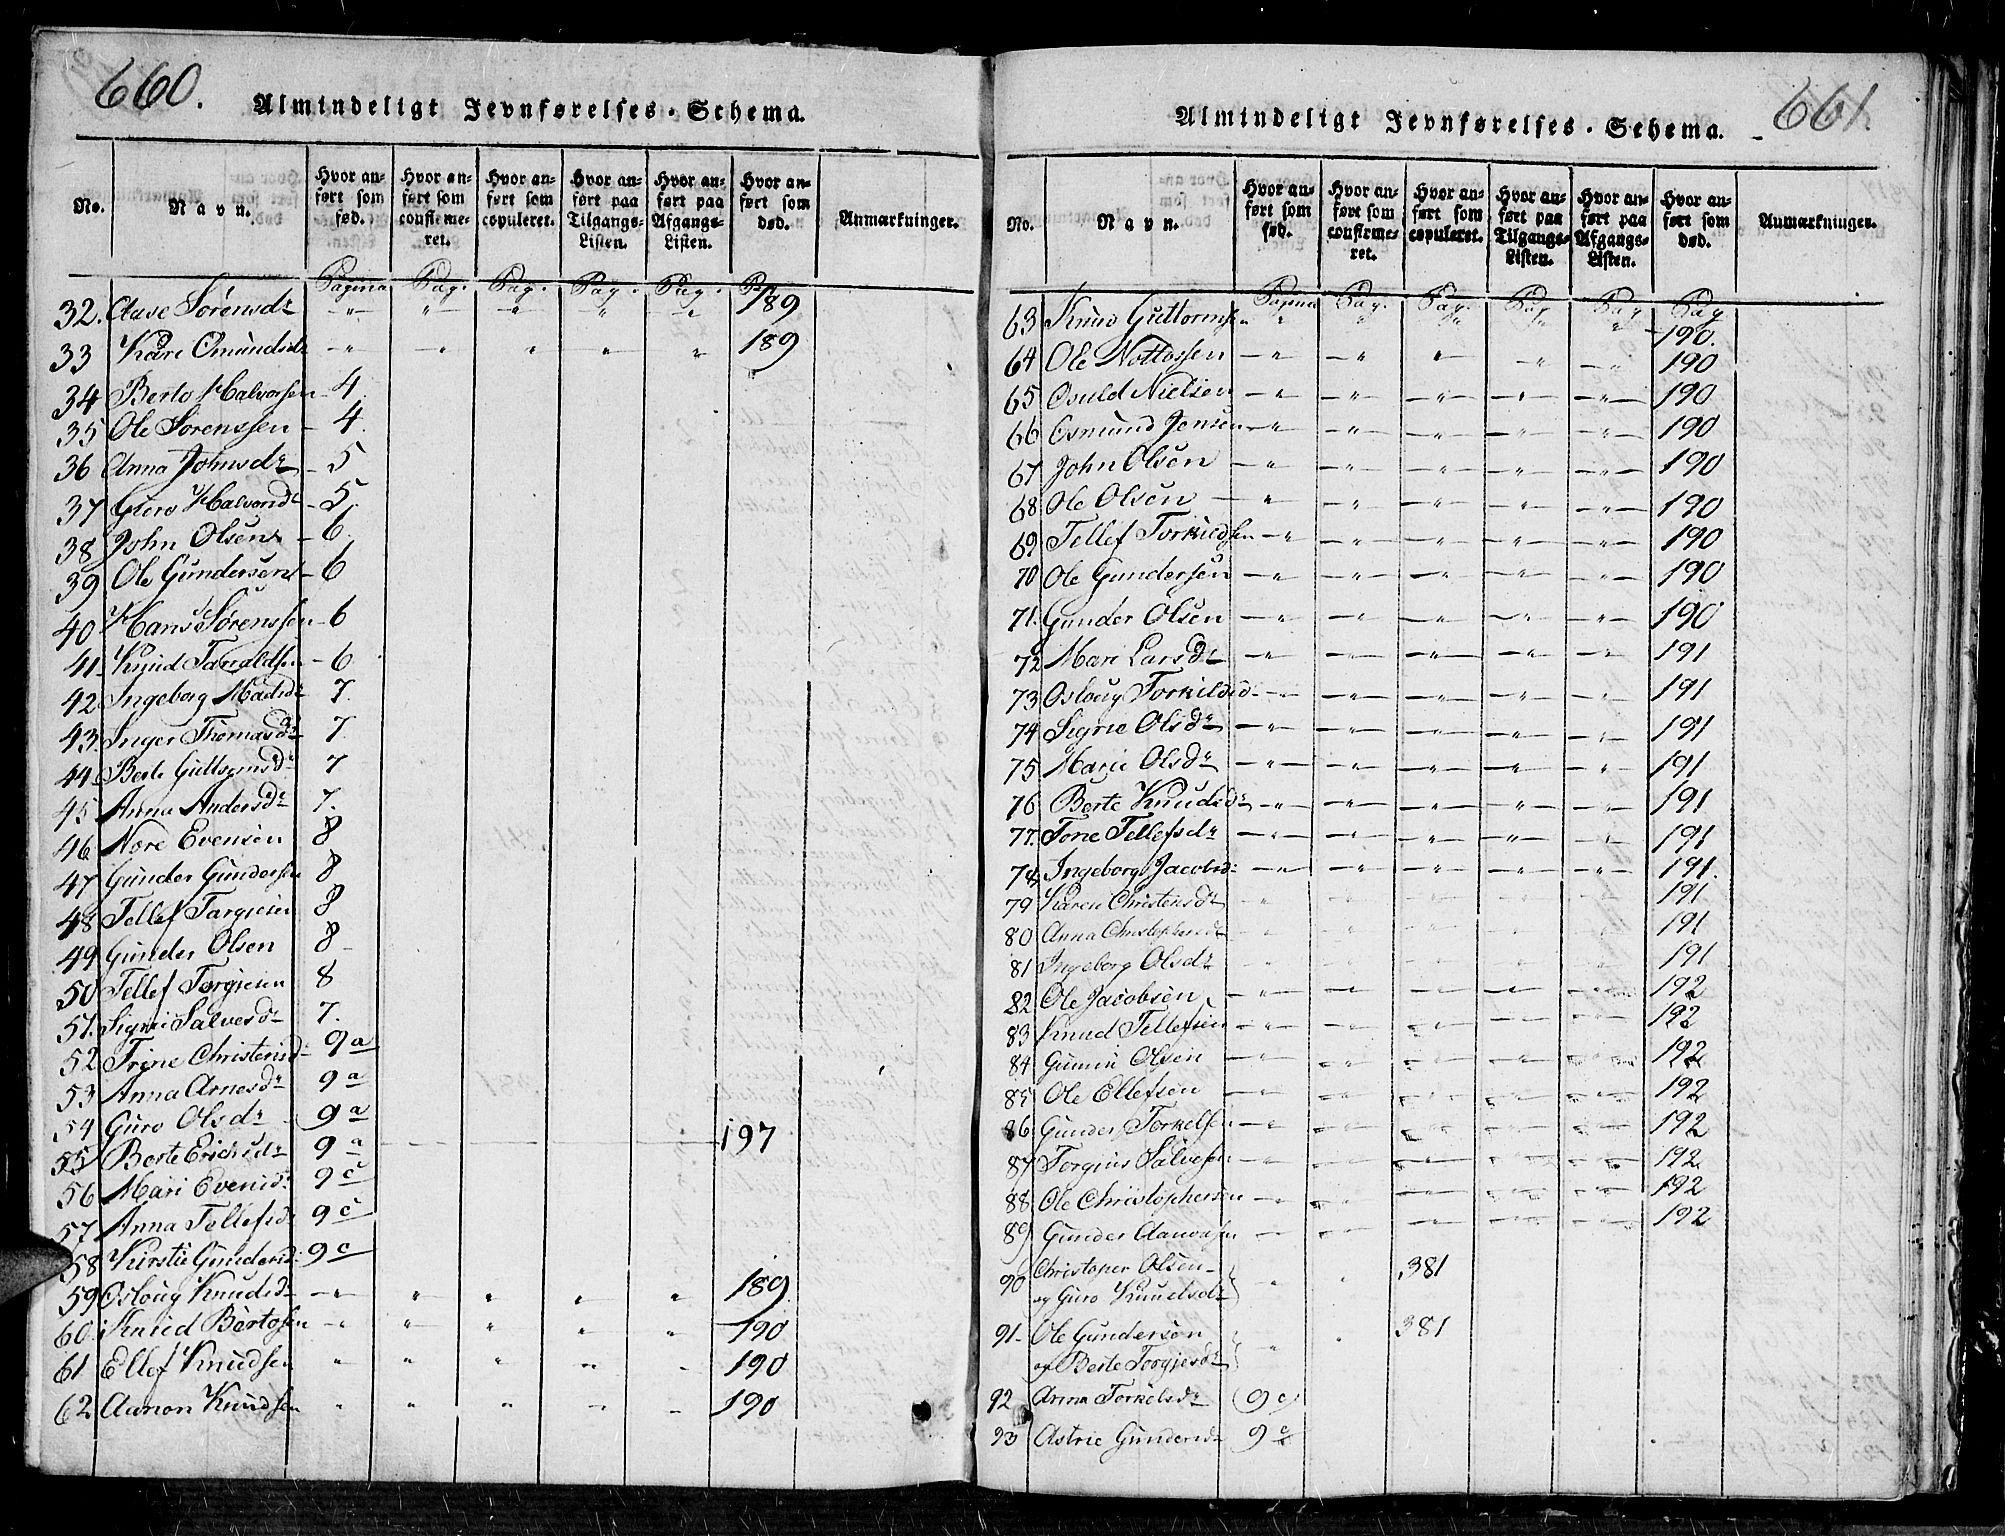 660.
Almindeligt Jevnførelses-Schema.
No. Navn. Hvor anført som fød. Hvor anført som confirmeret. Hvor anført som copuleret. Hvor anført paa Tilgangs-Listen. Hvor anført paa Afgangs-Listen. Hvor anført som død. Anmærkninger.
Pagina Pag. Pag. Pag. Pag. Pag.
32. Aase Sørensdr - " " " " " 189
33 Kari Omundsdr - " " " " " 189
34 Berto Halvorsen - 4.
35 Ole Sørenssen - 4.
36 Anna Johnsdr - 5
37 Guro Halvorsdr - 5
38 John Olsen - 6.
39 Ole Gundersen - 6
40 Hans Sørenssen - 6
41 Knud Taraldsen - 6.
42 Ingeborg Madsdr 7.
43. Inger Thomasdr 7
44 Berte Guttormsdr 7
45 Anna Andersdr 7.
46 Nore Evensen 8
47 Gunder Gundersen 8
48 Tellef Targiesen 8
49 Gunder Olsen 8
50 Tellef Torgiesen 8
51. Sigri Salvesdr 7.
52 Trine Christensd: 9 a
53 Anna Arnesdr 9 a
54 Guro Olsdr 9 a
55 Berte Erichsdr 9 a 197
56 Mari Evensdr 9 c
57 Anna Tellefsdr 9 c
58 Kirstie Gundersd: 9 c
59 Osloug Knudsdr - " " " " " 189.
60. Knud Bertosen - " " " " " 190
61 Ellef Knudsen " " " " - 190
62 Aanon Knudsen " " " " - 190
661.
Almindeligt Jevnførelses-Schema.
No. Navn. Hvor anført som fød. Hvor anført som confirmeret. Hvor anført som copuleret. Hvor anført paa Tilgangs-Listen. Hvor anført paa Afgangs-Listen. Hvor anført som død. Anmærkninger.
Pagina Pag. Pag. Pag Pag Pag
63 Knud Guttormsen " " " " " 190.
64 Ole Nottossen - " " " " " 190
65 Osuld Nielsen - " " " " " 190
66 Osmund Jensen - " " " " " 190
67 John Olsen - " " " " " 190
68 Ole Olsen - " " " " " 190
69 Tellef Torkildsen - " " " " " 190
70 Ole Gundersen - " " " " " 190
71. Gunder Olsen - " " " " " 190
72 Mari Larsdr - " " " " " 191
73 Osloug Torkildsd - " " " " " 191
74 Sigrie Olsdr - " " " " " 191
75 Marie Olsdr - " " " " " 191
76 Berte Knudsd - " " " " " 191
77. Tone Tellefsdr - " " " " " 191
78 Ingeborg Jacobsd: - " " " " " 191.
79 Karen Christensdr - " " " " " 191
80 Anna Christophersdr - " " " " " 191
81 Ingeborg Olsdr - " " " " " 191
82 Ole Jacobsen - " " " " " 192
83 Knud Tellefsen - " " " " " 192
84 Gunni Olsen - " " " " " 192
85 Ole Ellefsen - " " " " " 192
86 Gunder Torkelsen - " " " " " 192
87 Torgius Salvesen - " " " " " 192
88 Ole Christophersen - " " " " " 192
89 Gunder Aanonsen - " " " " " 192
90 Christoper Olsen - " " 381
og Guro Knudsdr
91 - Ole Gundersen " " 381
og Berte Torgiesdr
92 Anna Torkelsdr 9 c
93 Astrie Gundersdr 9 c